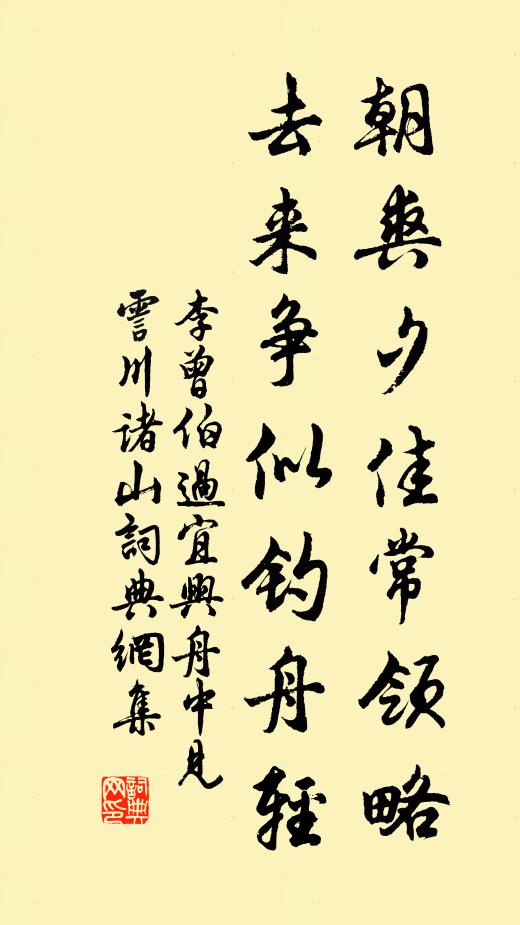 朝爽夕佳常领略
去来争似钓舟轻
李曾伯過宜興舟中見
霅川诸山詞典網集
詞典
网印